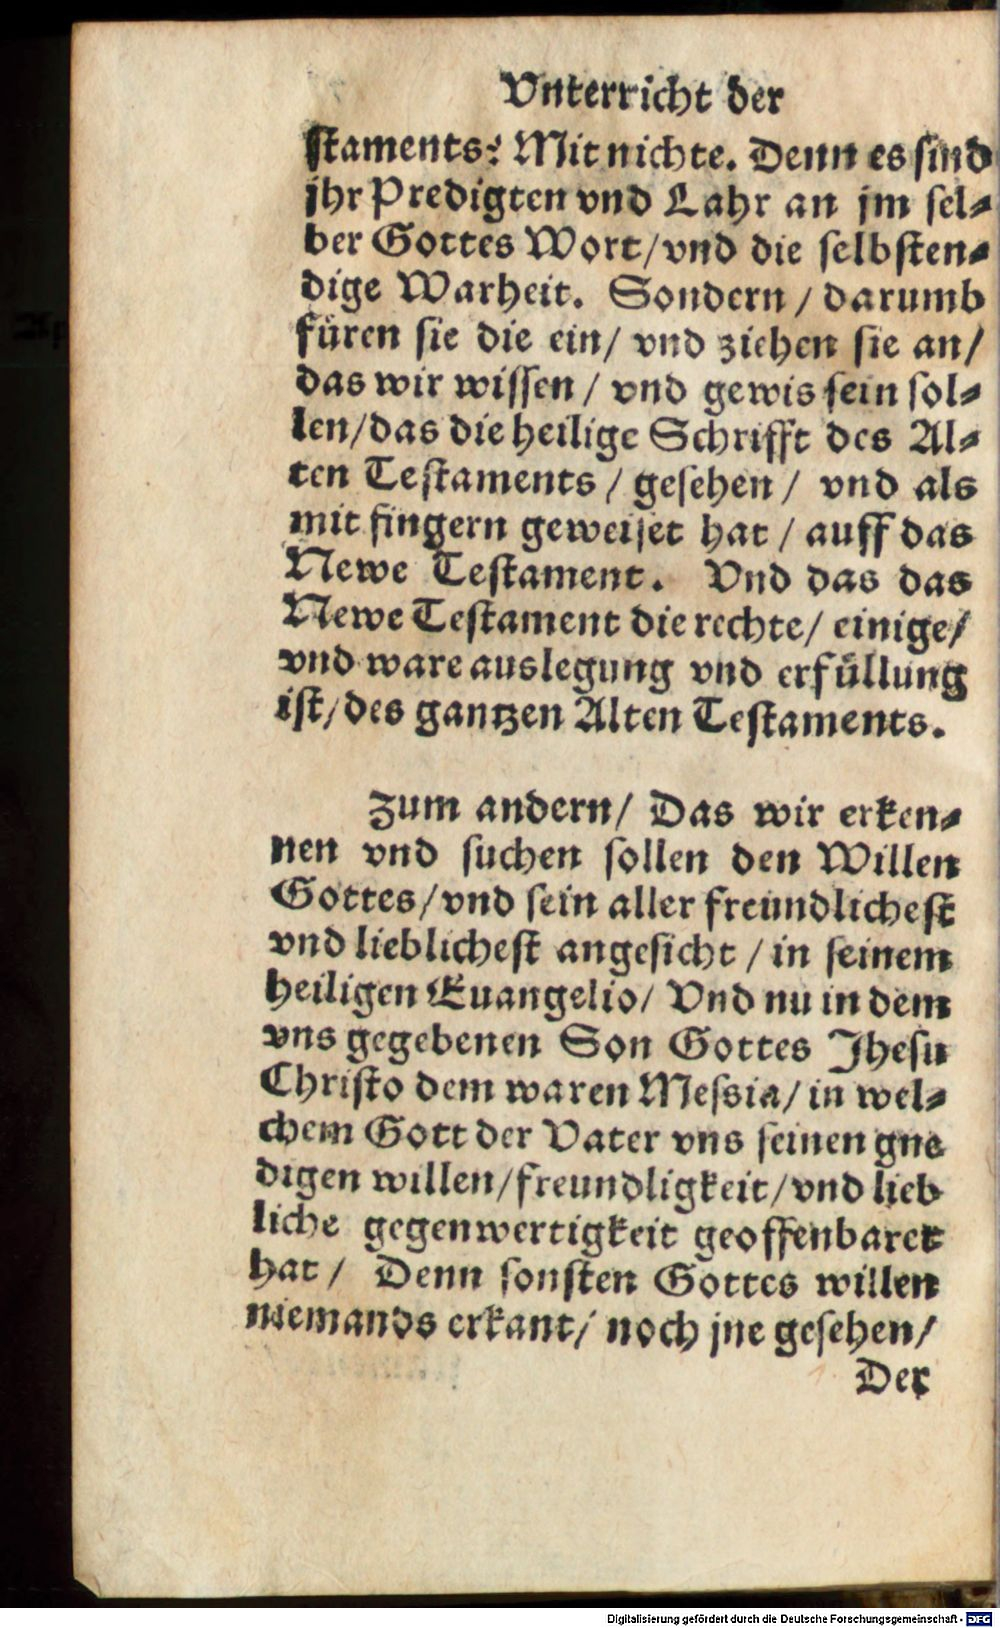 Vnterricht der
staments? Mit nichte. Denn es sind
jhr Predigten vnd Lahr an jm sel⸗
ber Gottes Wort/vnd die selbsten⸗
dige Warheit. Sondern / darumb
füren sie die ein/ vnd ziehen sie an/
das wir wissen / vnd gewis sein sol⸗
len/das die heilige Schrifft des Al⸗
ten Testaments / gesehen / vnd als
mit fingern geweiset hat / auff das
Newe Testament. Vnd das das
Newe Testament die rechte/ einige/
vnd ware auslegung vnd erfüllung
ist/des gantzen Alten Testaments.
Zum andern/ Das wir erken⸗
nen vnd suchen sollen den Willen
Gottes/vnd sein aller freundlichest
vnd lieblichest angesicht / in seinem
heiligen Euangelio/ Vnd nu in dem
vns gegebenen Son Gottes Jhesu
Christo dem waren Messia/ in wel⸗
chem Gott der Vater vns seinen gne
digen willen/freundligkeit/vnd lieb
liche gegenwertigkeit geoffenbaret
hat / Denn sonsten Gottes willen
niemands erkant/ noch jne gesehen/
Der
Digitalisierung gefördert durch die Deutsche Forschungsgemeinschaft - DFG